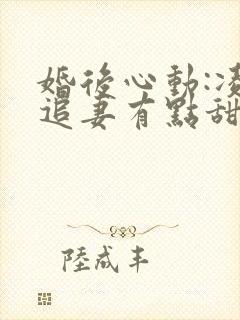 婚後心動:凌
追妻有點甜
陸成丰